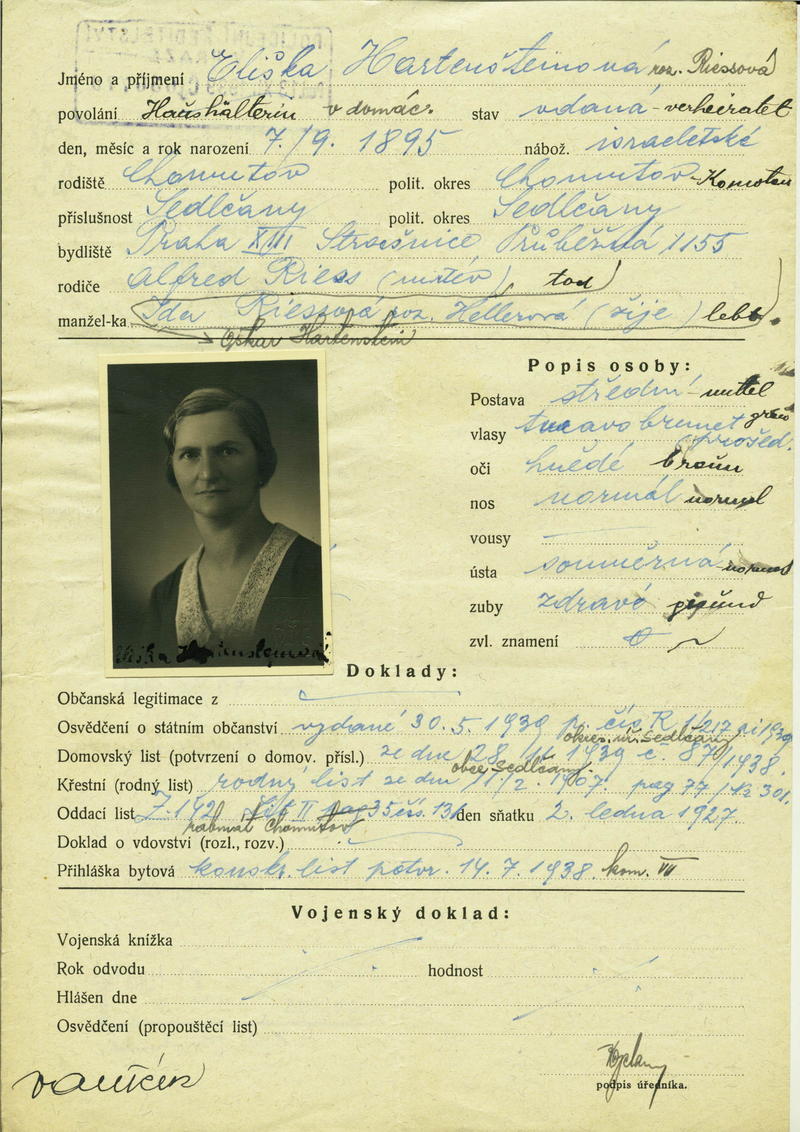 POLICEJNÍ ŘEDITELSTVÍ
Jméno a příjmení Eliška Hartensteinová roz. Riessová
povolání Haushälterin v domác. stav vdaná - verheiratet
den, měsíc a rok narození 7./9. 1895 nábož. israelitské
rodiště Chomutov polit. okres Chomutov - Komotau
příslušnost Sedlčany polit. okres Sedlčany
bydliště Praha XIII Strašnice, Průběžná 1155
rodiče Alfred Riess (mrtév) tod
manžel-ka Ida Riessová roz. Hellerová (žije) lebt.
Oskar Hartenstein
Popis osoby:
Postava střední - mittel
vlasy tmavo brunet prošed.
oči hnědé braun
nos normál normal
vousy
ústa souměrná normal
zuby zdravé gesund
zvl. znamení
Eliška Hartensteinová
Doklady:
Občanská legitimace z
Osvědčení o státním občanství vydané 30.5.1939
okres. úř. Sedlčany
Domovský list (potvrzení o domov. přísl.) ze dne 28. 1939 č. 87/1938.
obce Sedlčany.
Křestní (rodný list) rodný list ze dne 1907. pag 77
Oddací list List II 35 den sňatku 2. ledna 1927.
rabinát Chomutov
Doklad o vdovství (rozl., rozv.)
Přihláška bytová konskr. list potvr. 14.7.1938. kom. VII
Vojenský doklad:
Vojenská knížka
Rok odvodu hodnost
Hlášen dne
Osvědčení (propouštěcí list)
podpis úředníka.